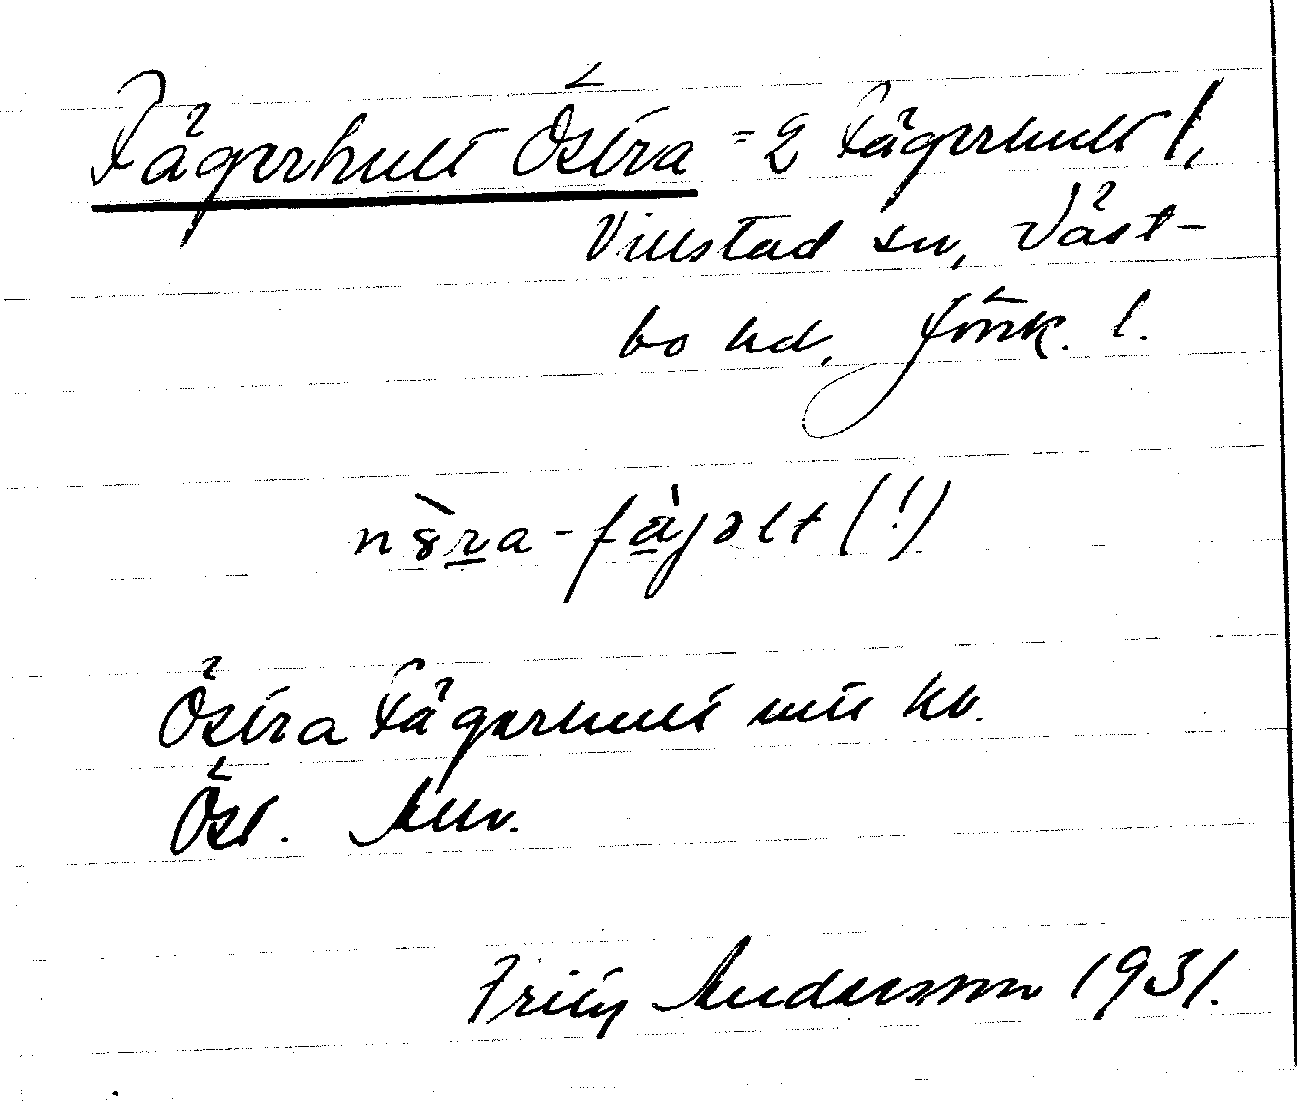 Fågerhult Östra = 2 Fågerhult 1,
Villstad sn, Väst-
bo hd, Jönk. l.
Östra Fågerhult mtl kb.
Öst.
Fritz Andersson 1931.